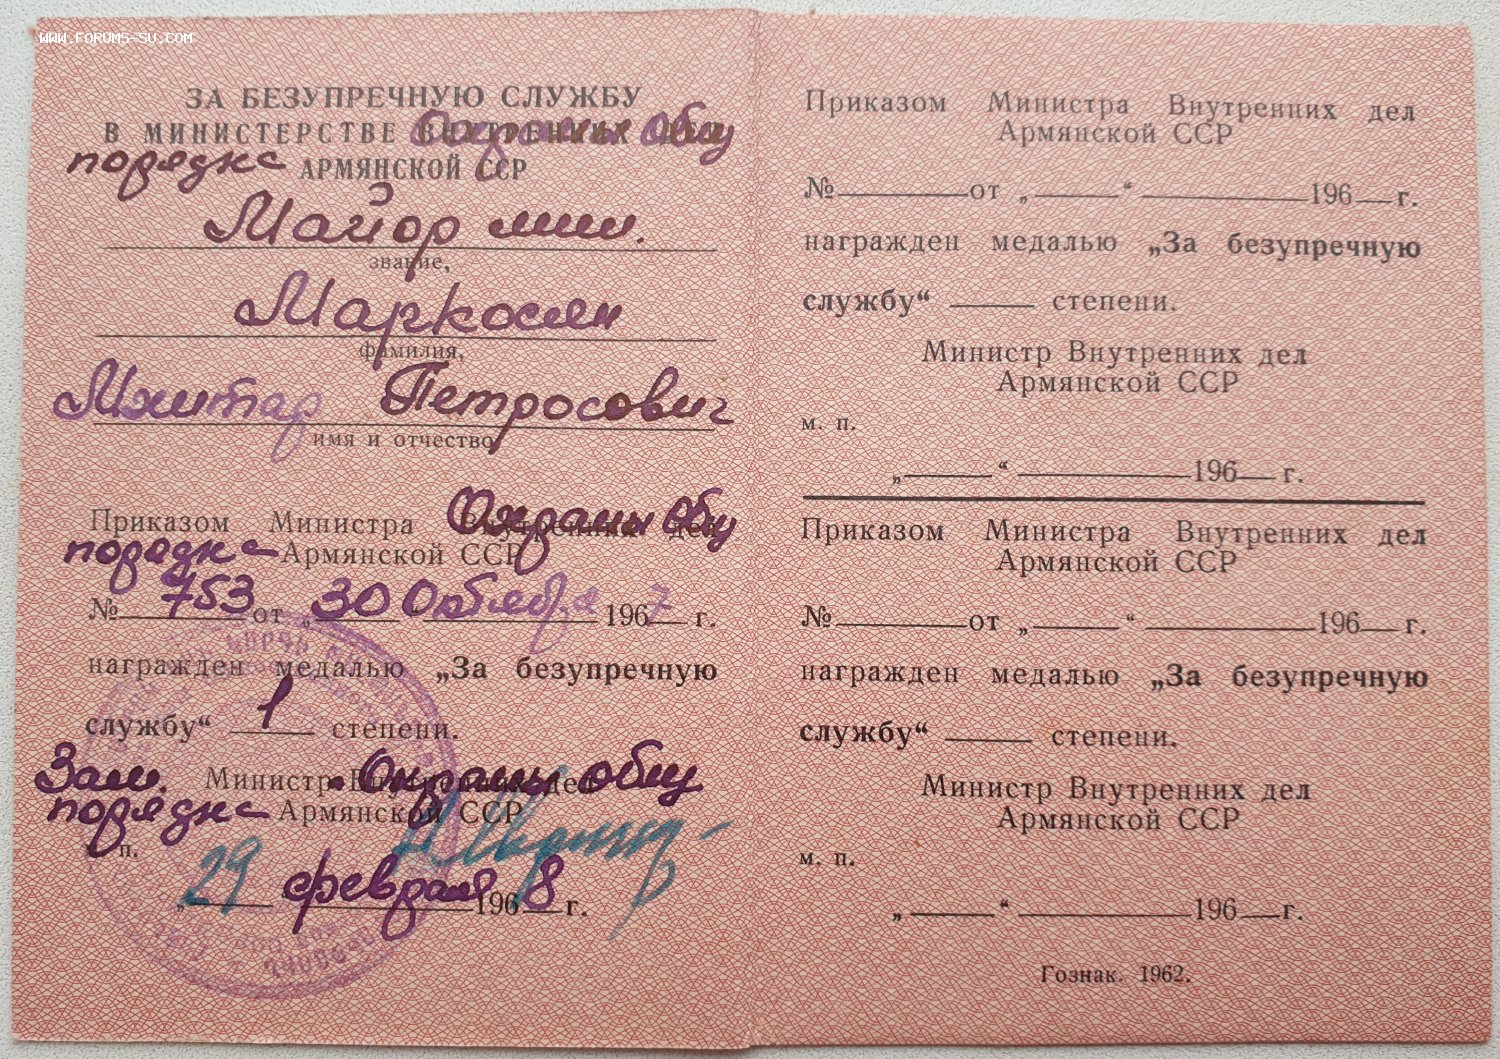 WWW.FORUMS-SU.COM
ЗА БЕЗУПРЕЧНУЮ СЛУЖБУ
В МИНИСТЕРСТВЕ ВНУТРЕННИХ ДЕЛ Охраны общ
порядка АРМЯНСКОЙ ССР
Майор мил.
звание,
Маркосян
фамилия,
Мхитар Петросович
имя и отчество
Приказом Министра Внутренних дел Охраны общ
порядка Армянской ССР
№ 753 от „30 Октября 1967 г.
награжден медалью „За безупречную
службу“ 1 степени.
Зам. Министр Внутренних дел Охраны общ
порядка Армянской ССР
п.
„29 февраля 1968 г.
Приказом Министра Внутренних дел
Армянской ССР
№ от „ “ 196 г.
награжден медалью „За безупречную
службу“ степени.
Министр Внутренних дел
Армянской ССР
м. п.
„ “ 196 г.
Приказом Министра Внутренних дел
Армянской ССР
№ от „ “ 196 г.
награжден медалью „За безупречную
службу“ степени.
Министр Внутренних дел
Армянской ССР
м. п.
„ “ 196 г.
Гознак. 1962.